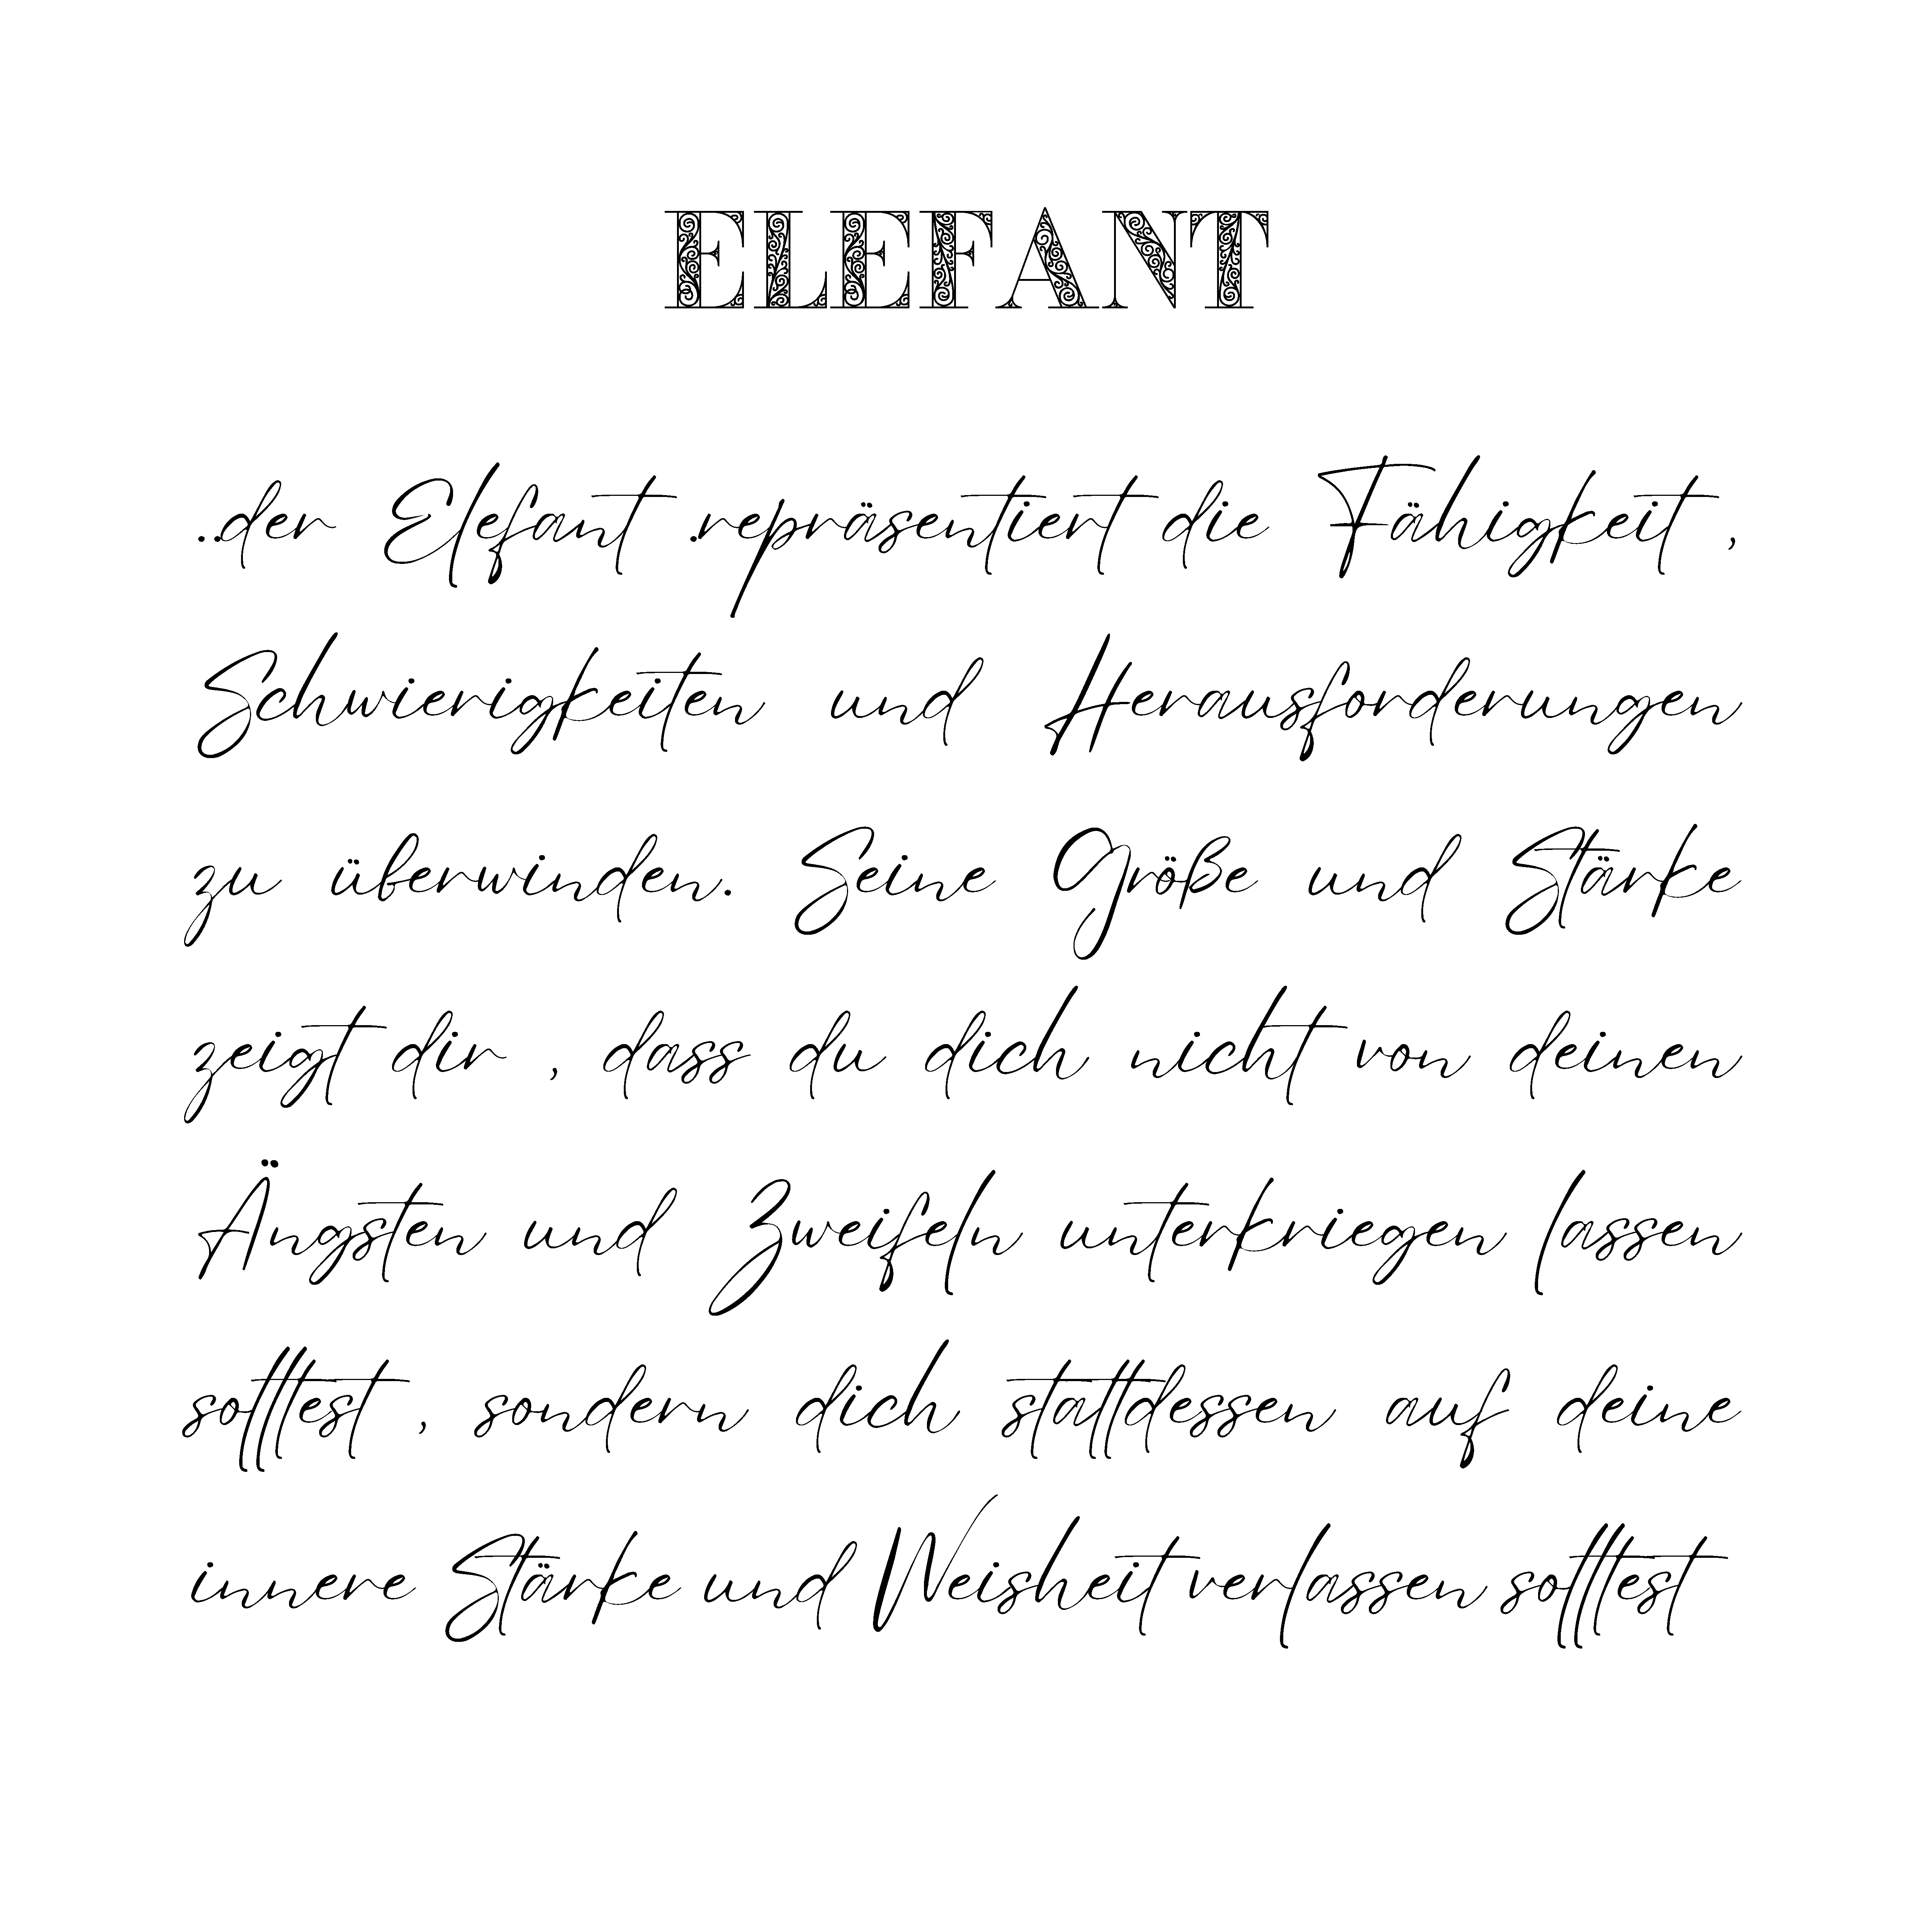 ELEFANT
..der Elefant .repräsentiert die Fähigkeit ,
Schwierigkeiten und Herausforderungen
zu überwinden. Seine Größe und Stärke
zeigt dir , dass du dich nicht von deinen
Ängsten und Zweifeln unterkriegen lassen
solltest , sondern dich stattdessen auf deine
innere Stärke und Weisheit verlassen solltest